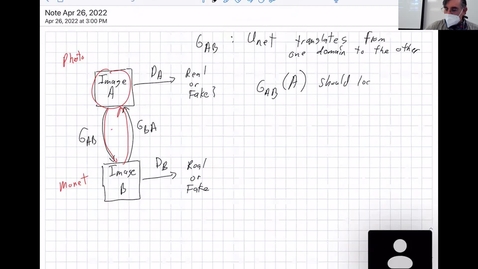 Note Apr 26, 2022
Apr 26, 2022 at 3:00 PM
G_AB : Unet translates from
one domain to the other
Photo
Image
A
D_A
Real
or
Fake}
G_AB (A) should loo
G_AB
G_BA
Monet
Image
B
D_B
Real
or
Fake